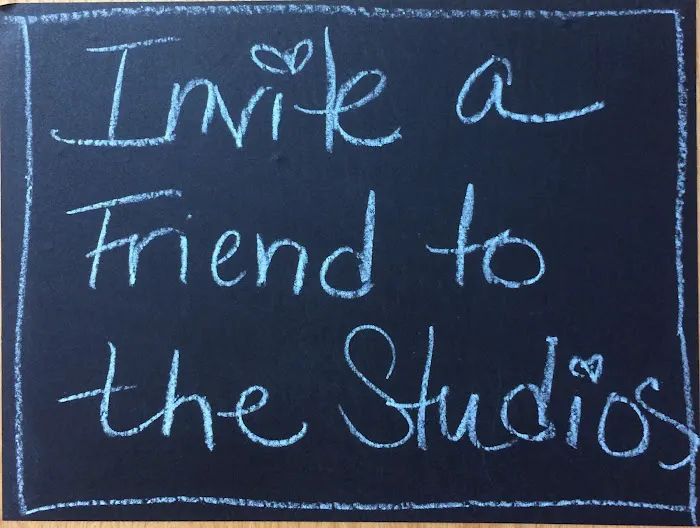 Invite a
Friend to
the Studios